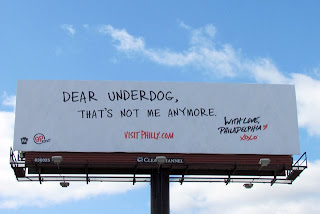 DEAR UNDERDOG,
THAT'S NOT ME ANYMORE.
VISITPHILLY.COM
WITH LOVE,
PHILADELPHIA
XOXO
CLEAR CHANNEL